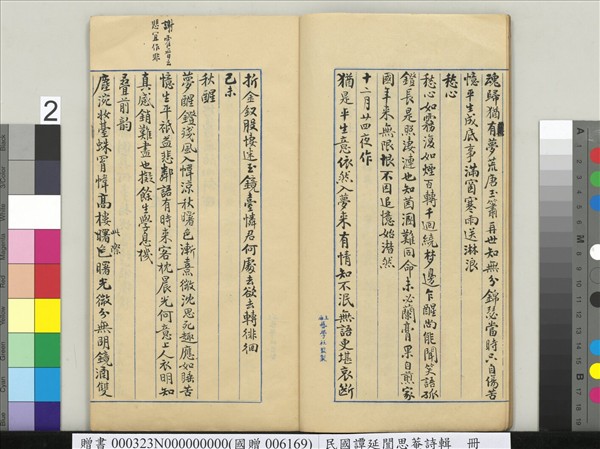 魂歸猶有夢荒唐玉簫再世知無分錦瑟當時只自傷苦
憶平生成底事滿窗寒雨送淋浪
愁心
愁心如霧復如煙百轉千迴繞夢邊乍醒尚能聞笑語孤
鐙長是照淒漣也知茵溷難同命未必蘭膏果自煎家
國年來無限恨不因追憶始潸然
十二月廿四夜作
猶是半生意依然入夢來有情知不泯無語更堪哀斷
折金釵股塵迷玉鏡臺憐君何處去欲去轉徘徊
己未
秋醒
夢醒鐙殘風入幃涼秋曙色漸熹微沈思死趣應如睡苦
憶生平祇益悲鄰語有時來客枕晨光何意上人衣明知
真惑銷難盡也擬餘生學息機
疊前韵
塵浣妝臺蛛罥幃高樓曙色曙光微分無明鏡滴雙
此際
2
贈書 000323N000000000(國贈 006169)
民國譚延闓思菴詩輯 冊